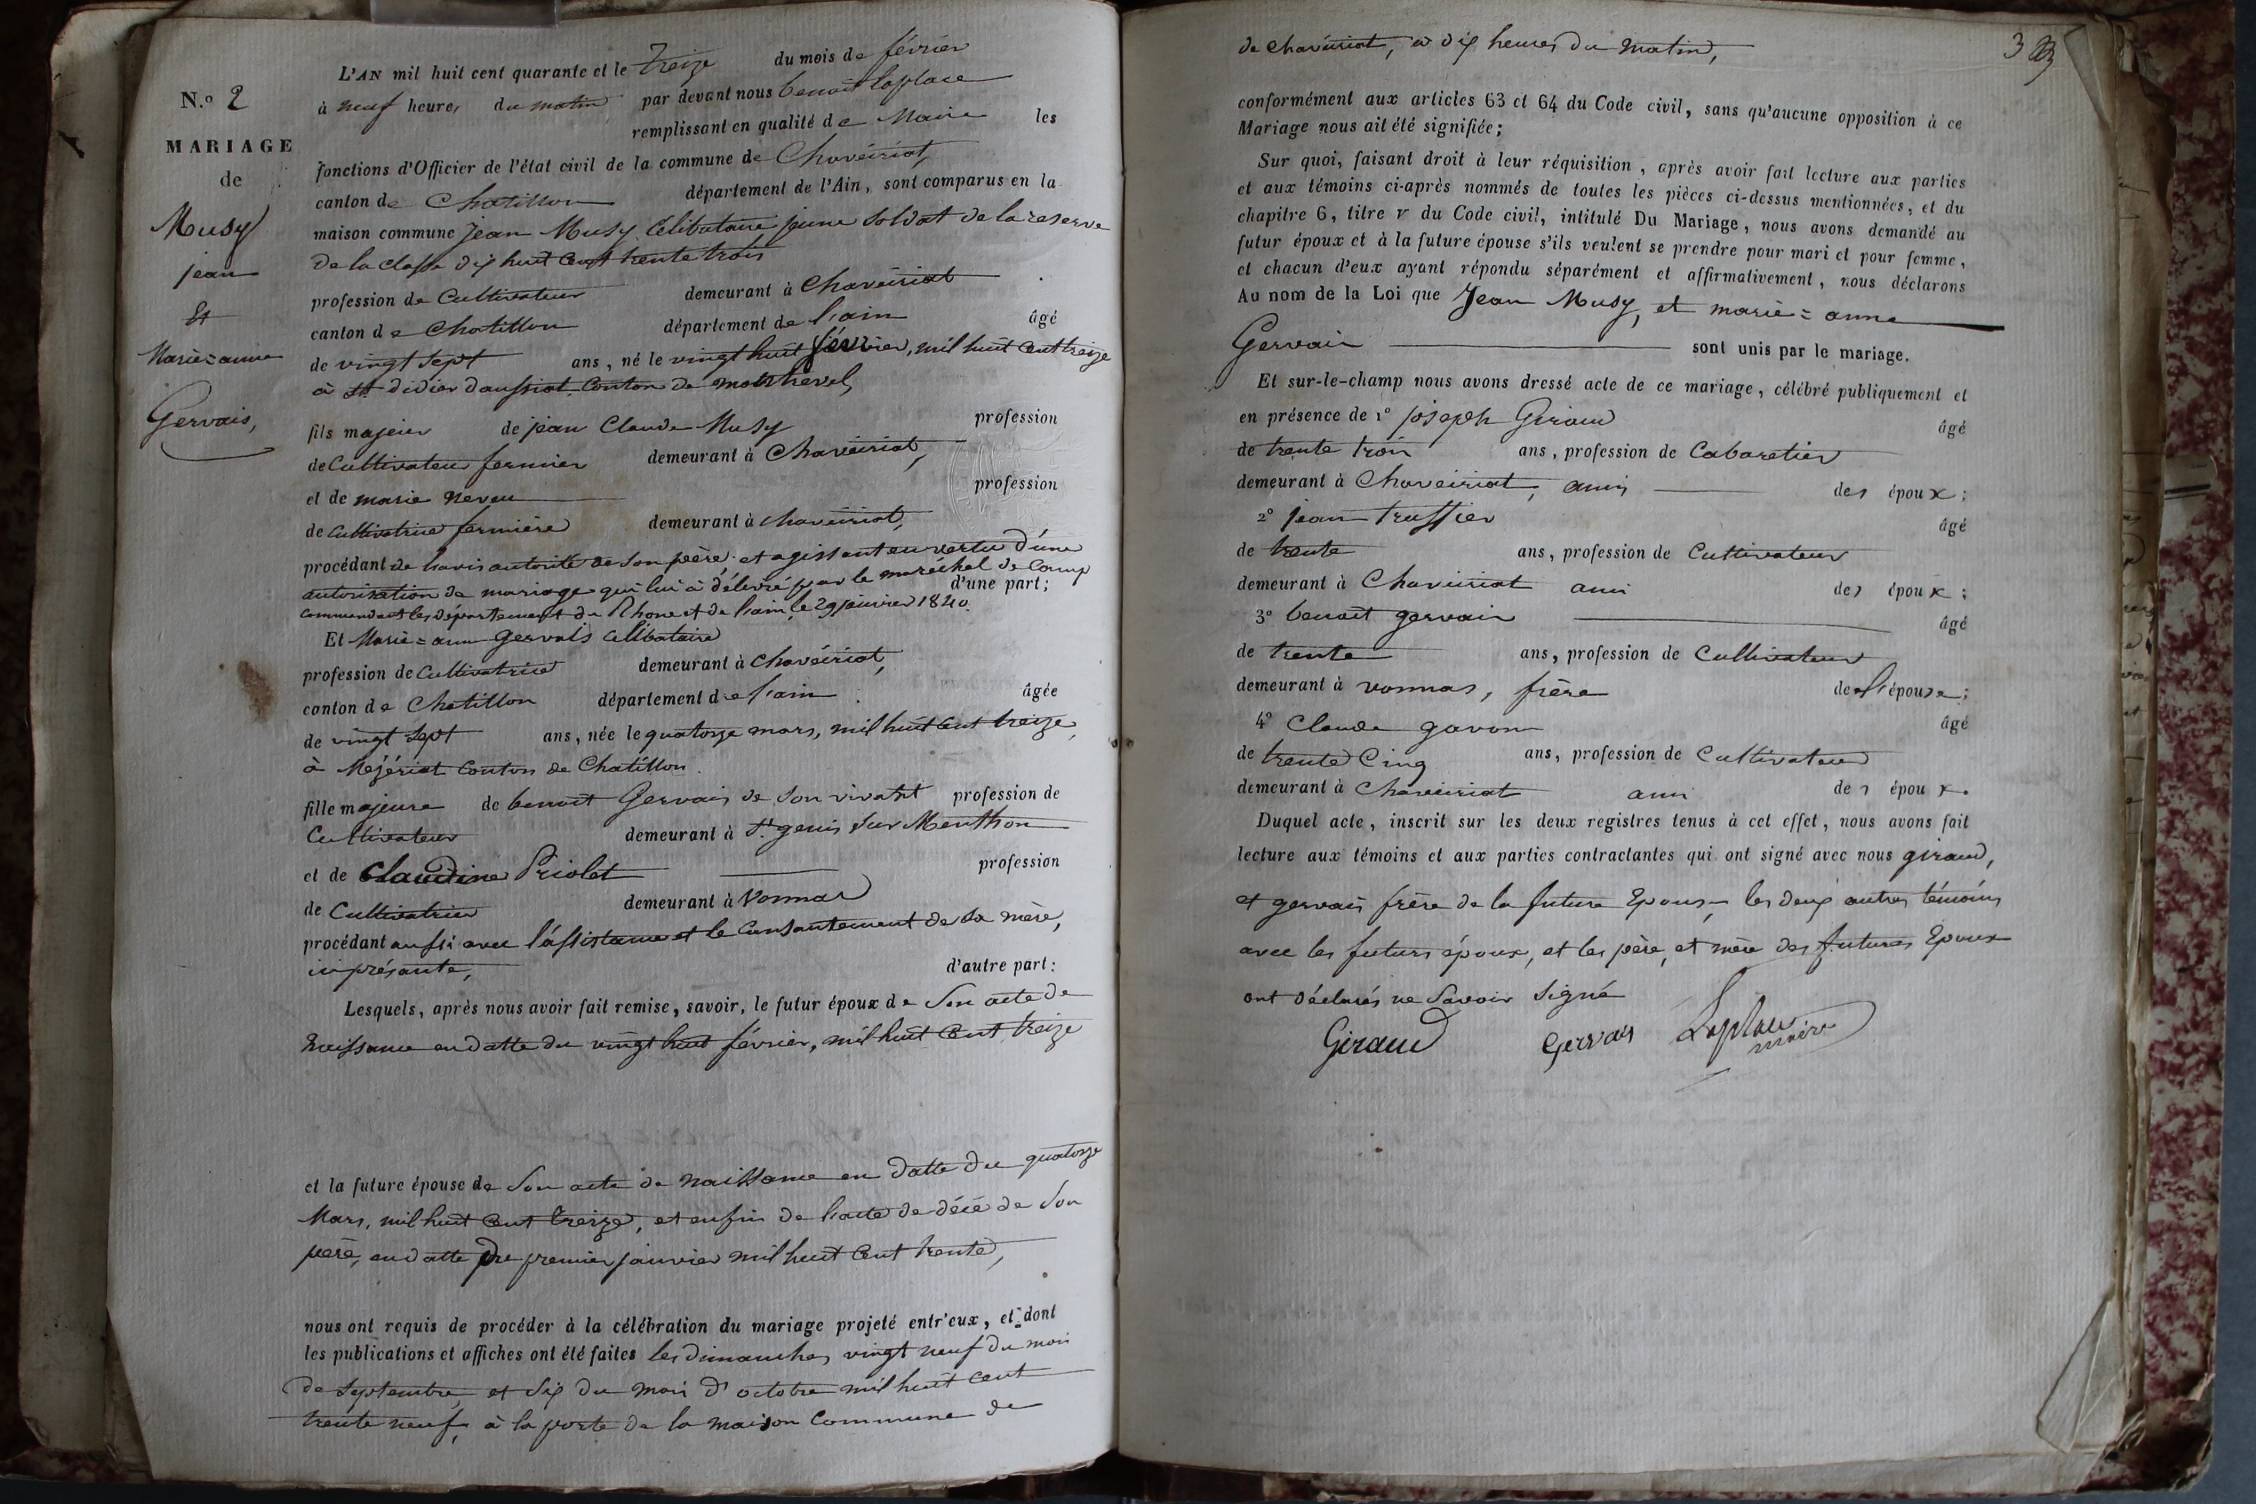 N.o 2
MARIAGE
de
Musy
jean
Et
Marie=anne
Gervais,
L'AN mil huit cent quarante et le treize du mois de février
à neuf heures du matin par devant nous benoît Laplace
remplissant en qualité de Maire les
fonctions d'Officier de l'état civil de la commune de Chaveiriat,
canton de Chatillon département de l'Ain, sont comparus en la
maison commune jean Musy Celibataire jeune soldat de la reserve
de la classe dix huit cent trente trois
profession de Cultivateur demeurant à Chaveiriat
canton de Chatillon département de l'ain âgé
de vingt sept ans, né le vingt huit février, mil huit cent treize
à St didier daussiat canton de montrevel,
fils majeur de jean Claude Musy profession
de Cultivateur fermier demeurant à Chaveiriat,
et de marie neveu profession
de Cultivatrice fermière demeurant à chaveiriat,
procédant de l'avis autorité de son père et agissant en vertu d'une
autorisation de mariage qui lui à délivré par le maréchal de Camp
d'une part;
commandant les département du Rhone et de l'ain, le 29 janvier 1840.
Et Marie=anne gervais célibataire
profession de Cultivatrice demeurant à chaveiriat,
canton de Chatillon département de l'ain âgée
de vingt sept ans, née le quatorze mars, mil huit cent treize,
à Mézériat Canton de Chatillon.
fille majeure de benoit Gervais de son vivant profession de
Cultivateur demeurant à St. genis sur Menthon
et de Claudine Priolet profession
de Cultivatrice demeurant à Vonnas
procédant aussi avec l'assistance et le consantement de sa mère,
ici présante, d'autre part:
Lesquels, après nous avoir fait remise, savoir, le futur époux de son acte de
naissance en datte du vingt huit février, mil huit cent treize
et la future épouse de son acte de naissance en datte du quatorze
Mars, mil huit cent treize, et enfin de l'acte de décé de son
père, en datte du premier janvier mil huit cent trente,
nous ont requis de procéder à la célébration du mariage projeté entr'eux, et dont
les publications et affiches ont été faites les dimanches vingt neuf du mois
de septembre, et six du mois d'octobre mil huit cent
trente neuf, à la porte de la maison commune de
de chaveiriat, à dix heures du matin,
conformément aux articles 63 et 64 du Code civil, sans qu'aucune opposition à ce
Mariage nous ait été signifiée;
Sur quoi, faisant droit à leur réquisition, après avoir fait lecture aux parties
et aux témoins ci-après nommés de toutes les pièces ci-dessus mentionnées, et du
chapitre 6, titre v du Code civil, intitulé Du Mariage, nous avons demandé au
futur époux et à la future épouse s'ils veulent se prendre pour mari et pour femme,
et chacun d'eux ayant répondu séparément et affirmativement, nous déclarons
Au nom de la Loi que Jean Musy, et marie=anne
Gervais sont unis par le mariage.
Et sur-le-champ nous avons dressé acte de ce mariage, célébré publiquement et
en présence de 1o joseph Giraud âgé
de trente trois ans, profession de Cabaretier
demeurant à Chaveiriat, ami des époux;
2o jean truffier âgé
de trente ans, profession de Cultivateur
demeurant à Chaveiriat ami des époux;
3o benoit gervais âgé
de trente ans, profession de Cultivateur
demeurant à vonnas, frère de l'épouse;
4o Claude gavon âgé
de trente cinq ans, profession de Cultivateur
demeurant à Chaveiriat ami des époux.
Duquel acte, inscrit sur les deux registres tenus à cet effet, nous avons fait
lecture aux témoins et aux parties contractantes qui ont signé avec nous giraud,
et gervais frère de la future Epouse, les deux autres témoins
avec les futurs époux, et les père, et mère des futures Epoux
ont déclarés ne savoir signé
Giraud Gervais Laplace
maire